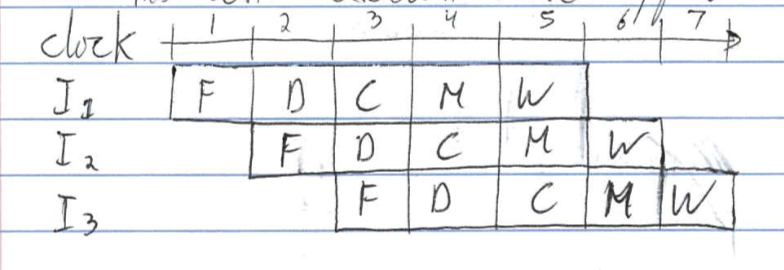 clock 1 2 3 4 5 6 7
I1 F D C M W
I2 F D C M W
I3 F D C M W